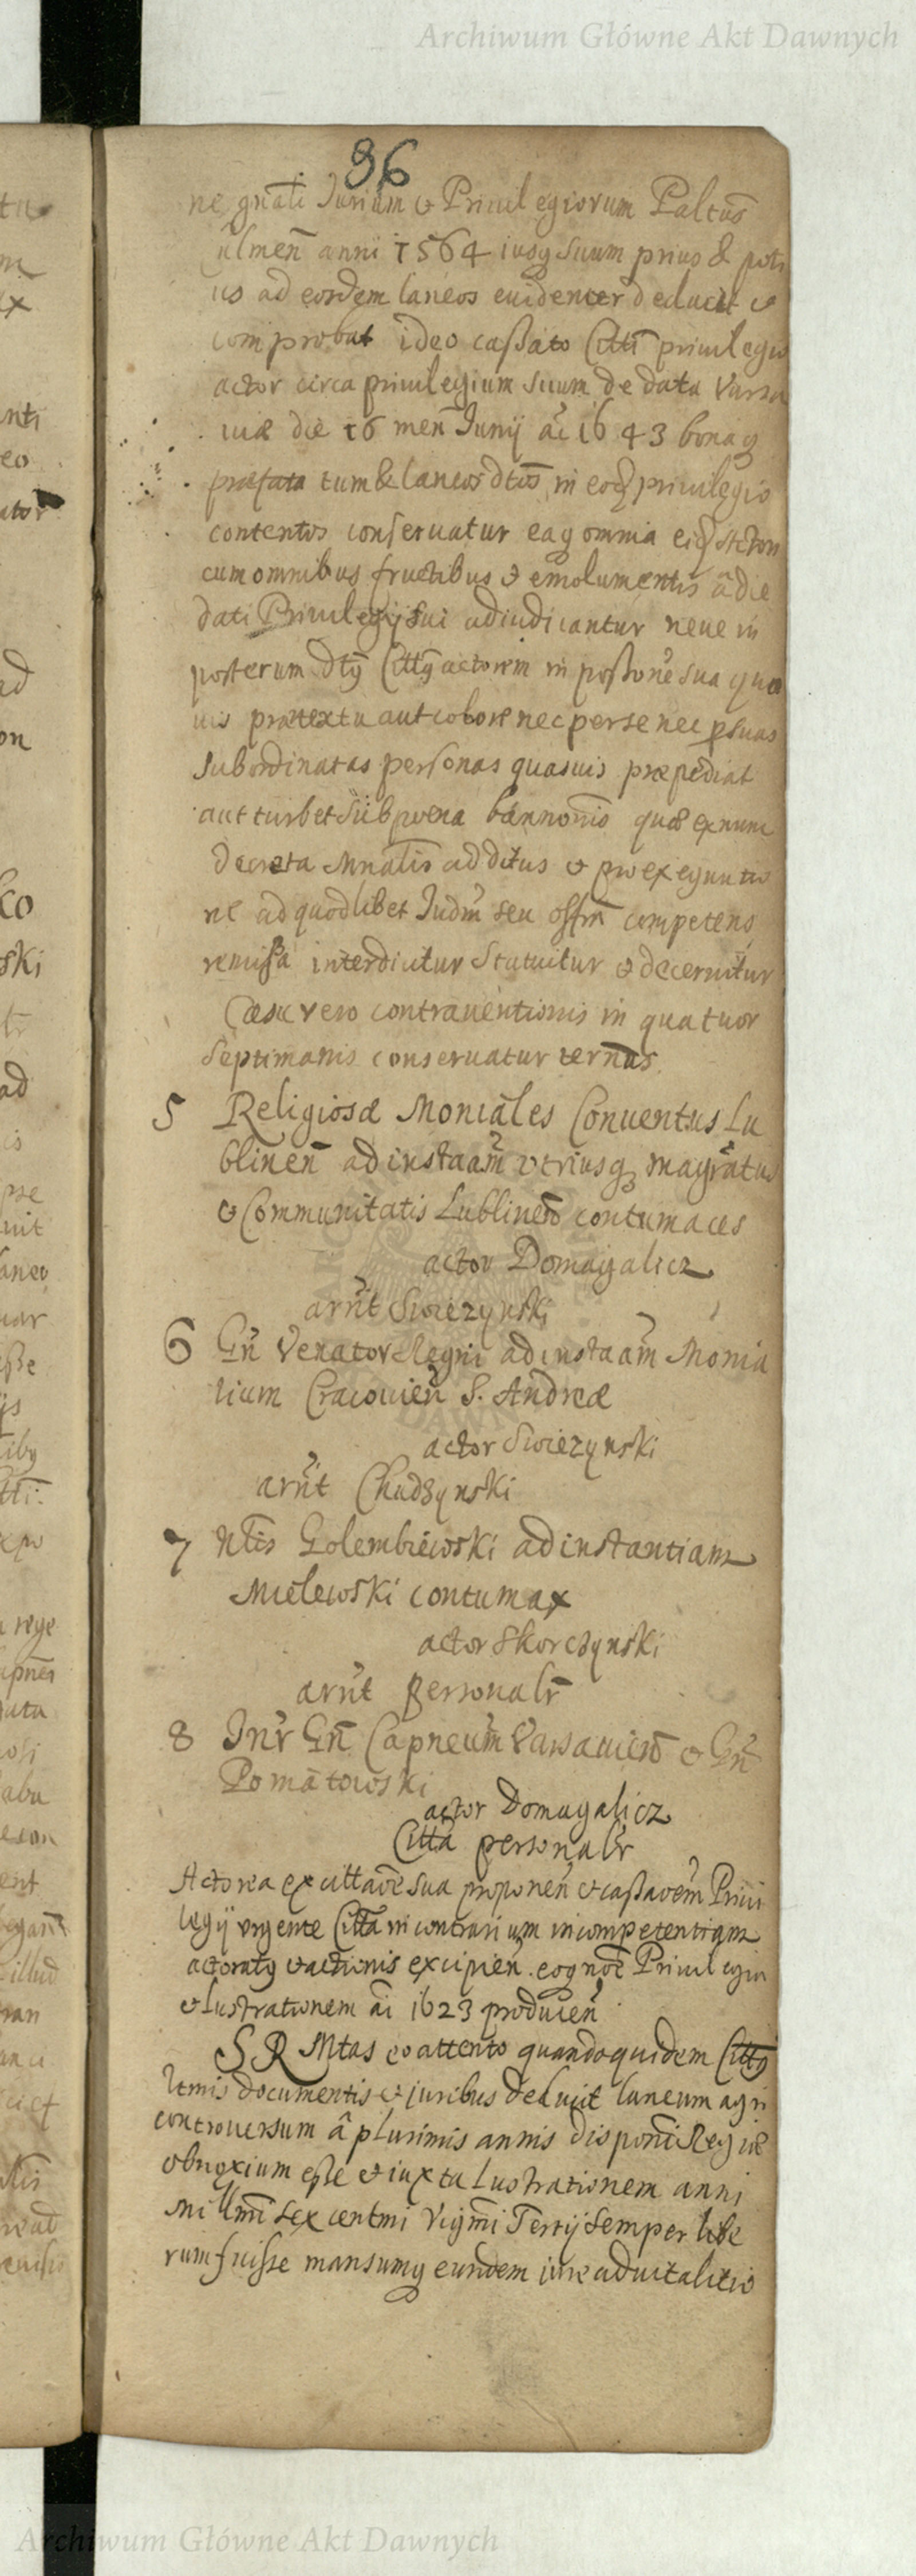 Archiwum Główne Akt Dawnych
36
ne gnãli Jurium & Privilegiorum Paltus
Culmeñ anni 1564 iusq suum prius & poti
us ad eosdem laneos evidenter deducit &
comprobat ideo cassato Citti privilegio
actor circa privilegium suum de data Varsa
viæ die 16 meñ Junij ai 1643 bonaq
præfata tum & laneos dtos in eoq privilegio
contentos conservatur eaq omnia eiq Actori
cum omnibus fructibus & emolumentis â die
dati Privilegij sui adiudicantur neve in
posterum dtq Cittq actorem in possone sua quo
vis prætextu aut colore nec per se nec p suas
subordinatas personas quasvis præpediat
aut turbet sub pœna bannonis quæ ex nunc
decreta Mnalis additus & pro exequutio
ne ad quodlibet Judm seu offm competens
remissa interdicitur statuitur & decernitur
Casu vero contraventionis in quatuor
septimanis conservatur ternus.
5 Religiosæ Moniales Conventus Lu
blineñ ad instaam utriusq magratus
& Communitatis Lublineñ contumaces
actor Domagalicz
arnt Swiezynski
6 Gñ Venator Regni ad instaam Monia
lium Cracovieñ S. Andreæ
actor Swiezynski
arnt Chudzynski
7 Nlis Golembiewski ad instantiam
Mielewski contumax
actor Skorczynski
arnt personalr
8 Inr Gñ Capneum Varsavieñ & Gñ
Pomatowski
actor Domagalicz
Citta personalr
Actorea ex cittaoe sua proponeñ & cassaoem Privi
legij urgente Citta in contrarium incompetentiam
actoratq & actionis excipieñ. cognoe Privilegiu
& lustrationem ai 1623 produceñ
S R Mtas eo attento quandoquidem Cittq
ltmis documentis & juribus deducit laneum agri
controversum â plurimis annis disponi Regiæ
obnoxium esse & iuxta Lustrationem anni
Millmi sexcentmi Vigmi Tertij semper libe
rum fuisse mansumq eundem iure advitalitio
Archiwum Główne Akt Dawnych